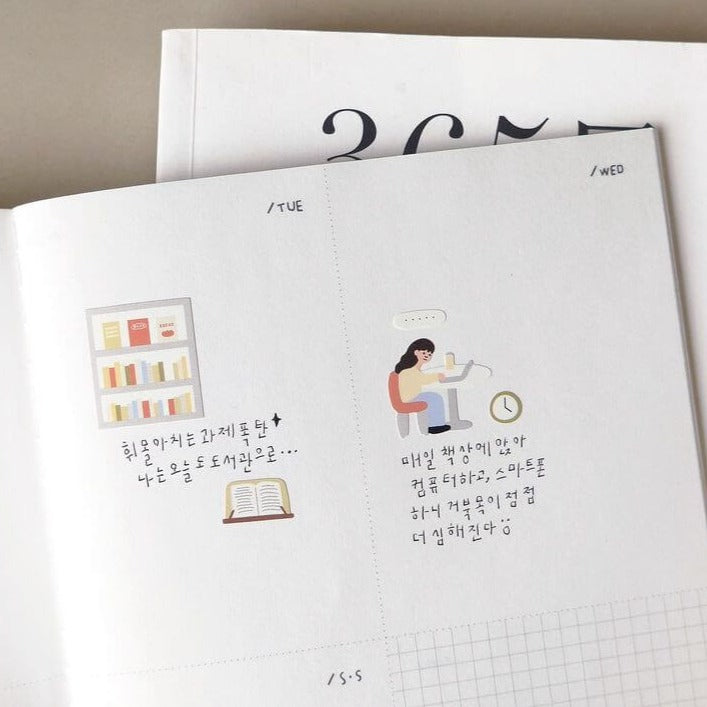 365
/TUE
/WED
휘몰아치는 과제폭탄
나는 오늘도 도서관으로...
매일 책상에 앉아
컴퓨터하고, 스마트폰
하니 거북목이 점점
더 심해진다
/S·S